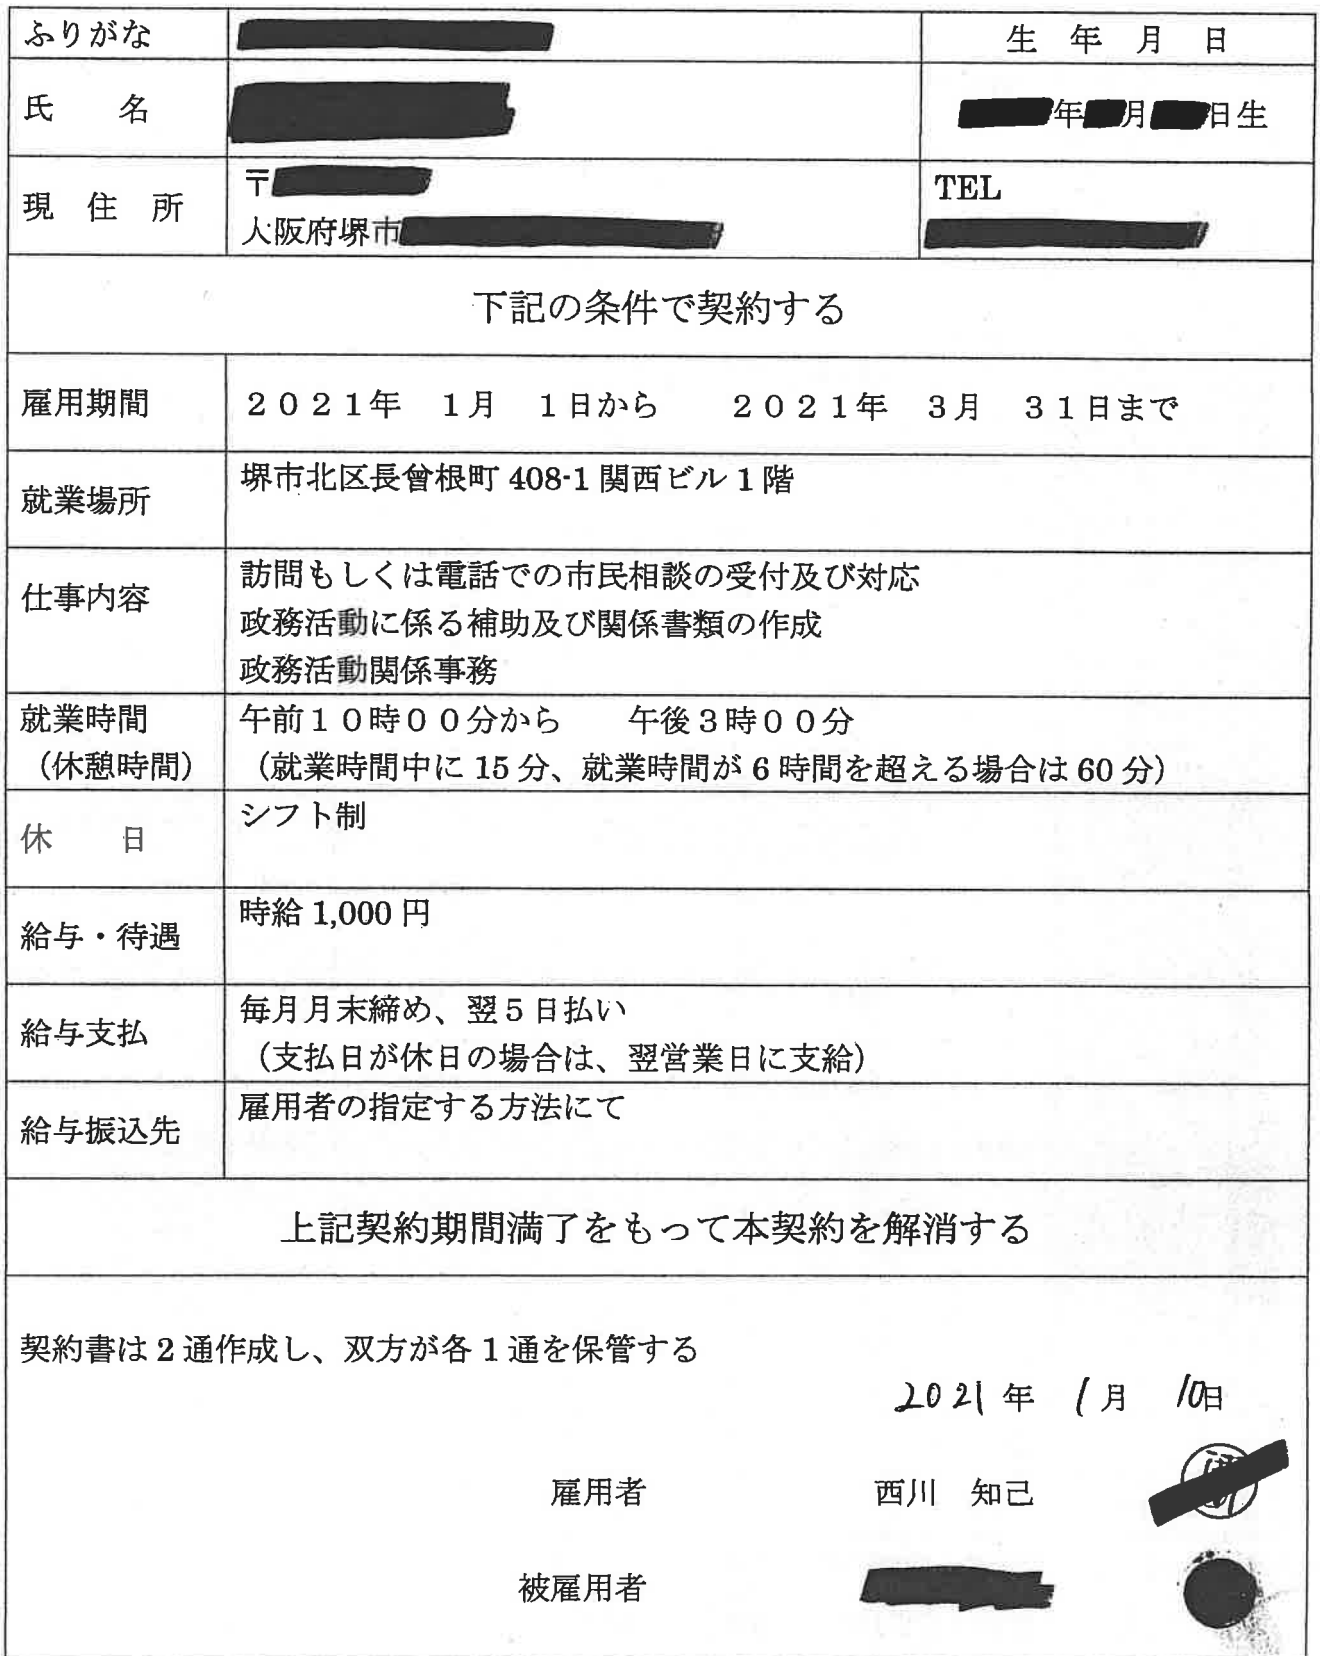 ふりがな
生　年　月　日
氏　　名
年　月　日生
現　住　所
〒
大阪府堺市
TEL
下記の条件で契約する
雇用期間
２０２１年　１月　１日から　　２０２１年　３月　３１日まで
就業場所
堺市北区長曾根町 408-1 関西ビル 1 階
仕事内容
訪問もしくは電話での市民相談の受付及び対応
政務活動に係る補助及び関係書類の作成
政務活動関係事務
就業時間
（休憩時間）
午前１０時００分から　　午後３時００分
（就業時間中に 15 分、就業時間が 6 時間を超える場合は 60 分）
休　　日
シフト制
給与・待遇
時給 1,000 円
給与支払
毎月月末締め、翌５日払い
（支払日が休日の場合は、翌営業日に支給）
給与振込先
雇用者の指定する方法にて
上記契約期間満了をもって本契約を解消する
契約書は 2 通作成し、双方が各 1 通を保管する
2021 年　1 月　10日
雇用者　　西川　知己
被雇用者